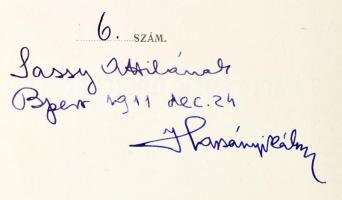 6. SZÁM.
Sassy Attilának
Bpest 1911 dec. 24
Harsányi Kálmán